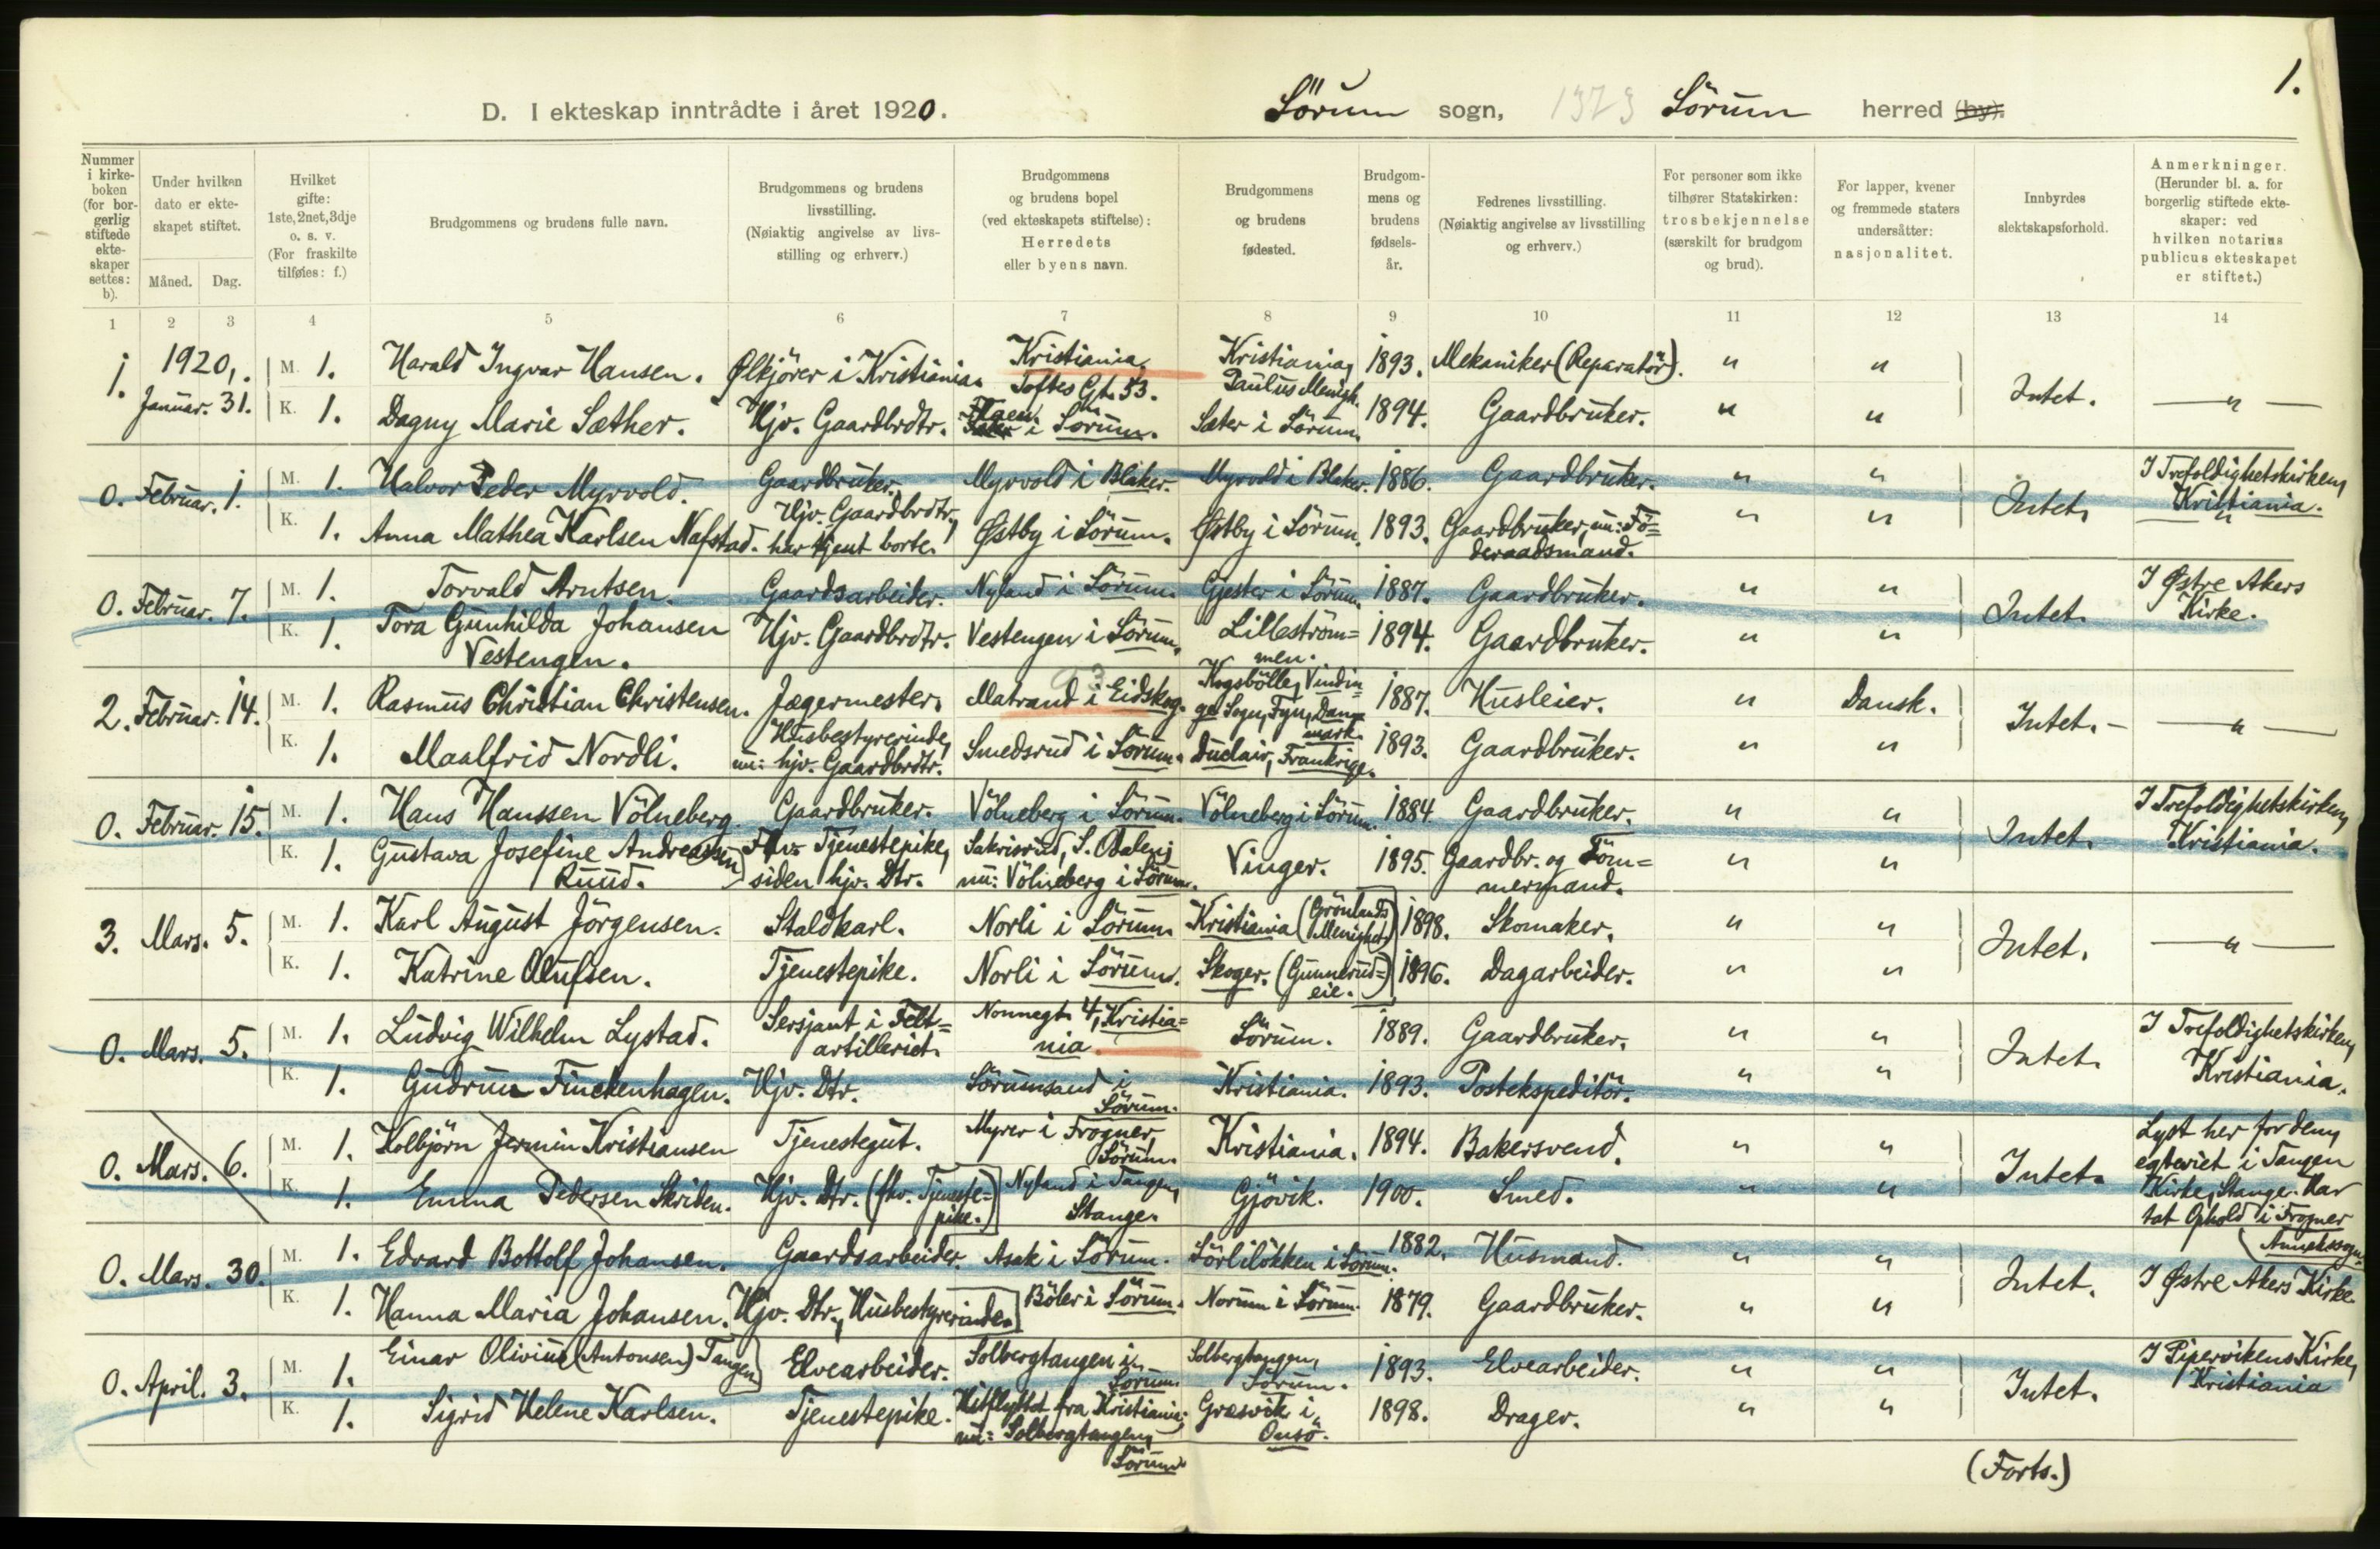 1.
D. I ekteskap inntrådte i året 1920. Sörum sogn, 1373 Sörum herred (by).
Nummer i kirke-boken (for bor-gerlig stiftede ekte-skaper settes: b).
Under hvilken dato er ekte-skapet stiftet.
Måned. Dag.
Hvilket gifte: 1ste, 2net, 3dje o. s. v. (For fraskilte tilføies: f.)
Brudgommens og brudens fulle navn.
Brudgommens og brudens livsstilling. (Nøiaktig angivelse av livs-stilling og erhverv.)
Brudgommens og brudens bopel (ved ekteskapets stiftelse): Herredets eller byens navn.
Brudgommens og brudens fødested.
Brudgom-mens og brudens fødsels-år.
Fedrenes livsstilling. (Nøiaktig angivelse av livsstilling og erhverv.)
For personer som ikke tilhører Statskirken: trosbekjennelse (særskilt for brudgom og brud).
For lapper, kvener og fremmede staters undersåtter: nasjonalitet.
Innbyrdes slektskapsforhold.
Anmerkninger. (Herunder bl. a. for borgerlig stiftede ekte-skaper: ved hvilken notarius publicus ekteskapet er stiftet.)
1 2 3 4 5 6 7 8 9 10 11 12 13 14
1. 1920,. Januar. 31.
M. 1. Harald Ingvar Hansen. Ølkjörer i Kristiania. Kristiania. Toftes Gt. 53. Kristiania, Paulus Menigh. 1893. Mekaniker (Reparatör). " "
K. 1. Dagny Marie Sæther. Hjv. Gaardbrdtr. i Sörum. Sæter i Sörum. 1894. Gaardbruker. " " Intet. — " —
0. Februar. 1.
M. 1. Halvor Peder Myrvold. Gaardbruker. Myrvold i Blaker. Myrvold i Blaker. 1886. Gaardbruker. " " I Trefoldighetskirken, Kristiania.
K. 1. Anna Mathea Karlsen Nafstad. Hjv. Gaardbrdtr., har tjent borte. Østby i Sörum. Østby i Sörum. 1893. Gaardbruker, nu: Fö=deraadsmand. " " Intet. "
0. Februar. 7.
M. 1. Torvald Arntsen. Gaardsarbeider. Nyland i Sörum. Gjester i Sörum. 1887. Gaardbruker. " " I Østre Akers Kirke.
K. 1. Tora Gunhilda Johansen Vestengen. Hjv. Gaardbrdtr. Vestengen i Sörum. Lilleström=men. 1894. Gaardbruker. " " Intet.
2. Februar. 14.
M. 1. Rasmus Christian Christensen. Jægermester. Matrand i Eidskog. Kogsbölle, Vindin=ge Sogn, Fyn, Danmark. 1887. Husleier. " Dansk.
K. 1. Maalfrid Nordli. Husbestyrerinde, nu: hjv. Gaardbrdtr. Smedsrud i Sörum. Duclair, Frankrige. 1893. Gaardbruker. " " Intet. — " —
0. Februar. 15.
M. 1. Hans Hanssen Völneberg. Gaardbruker. Völneberg i Sörum. Völneberg i Sörum. 1884. Gaardbruker. " " I Trefoldighetskirken, Kristiania.
K. 1. Gustava Josefine Andreassen Ruud. Tjenestepike, siden hjv. Dtr. Sakrisrud, S. Odalen; nu: Völneberg i Sörum. Vinger. 1895. Gaardbr. og Töm=mermand. " " Intet.
3. Mars. 5.
M. 1. Karl August Jörgensen. Staldkarl. Norli i Sörum. Kristiania (Grönlands Menighet) 1898. Skomaker. " "
K. 1. Katrine Olufsen. Tjenestepike. Norli i Sörum. Skoger. (Gunnerud=eie.) 1896. Dagarbeider. " " Intet. — " —
0. Mars. 5.
M. 1. Ludvig Wilhelm Lystad. Sersjant i Felt=artilleriet. Nonnegt. 4, Kristia=nia. Sörum. 1889. Gaardbruker. " " I Trefoldighetskirken, Kristiania.
K. 1. Gudrun Finckenhagen. Hjv. Dtr. Sörumsand i Sörum. Kristiania. 1893. Postekspeditör. " " Intet.
0. Mars. 6.
M. 1. Kolbjörn Jermin Kristiansen Tjenestegut. Myrer i Frogner Sörum. Kristiania. 1894. Bakersvend. " " Lyst her for dem, egteviet i Tangen Kirke, Stange. Har tat Ophold i Frogner Annekssogn.
K. 1. Emma Pedersen Skriden. Hjv. Dtr. (fhv. Tjeneste=pike.) Nyland i Tangen, Stange. Gjövik. 1900. Smed. " " Intet.
0. Mars. 30.
M. 1. Edvard Bottolf Johansen. Gaardsarbeider. Asak i Sörum. Sörlilökken i Sörum. 1882. Husmand. " " I Østre Akers Kirke.
K. 1. Hanna Maria Johansen. Hjv. Dtr., Husbestyrerinde. Böler i Sörum. Norum i Sörum. 1879. Gaardbruker. " " Intet.
0. April. 3.
M. 1. Einar Olivius (Antonsen) Tangen Elvearbeider. Solbergtangen i Sörum. Solbergtangen, Sörum. 1893. Elvearbeider. " " I Pipervikens Kirke, Kristiania
K. 1. Sigrid Helene Karlsen. Tjenestepike. Hitflyttet fra Kristiania; nu: Solbergtangen, Sörum. Græsvik i Onsö. 1898. Drager. " " Intet.
(Forts.)